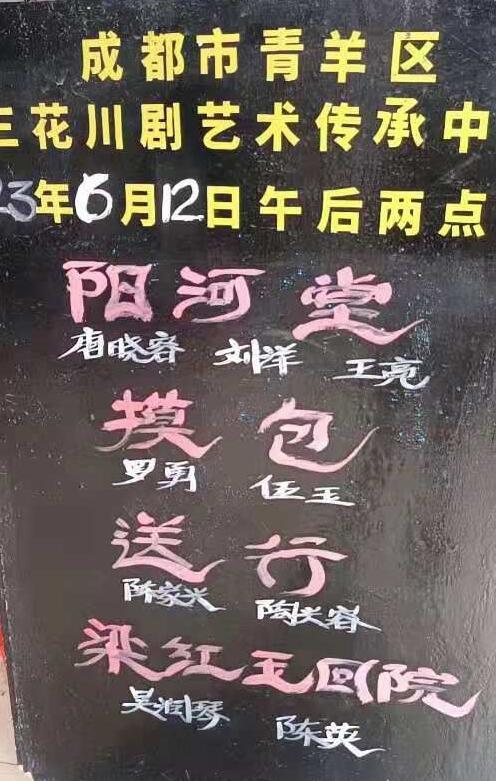 成都市青羊区
三花川剧艺术传承中
23年6月12日午后两点
阳河堂
唐晓容 刘洋 王亮
摸包
罗勇 伍玉
送行
陈家兴 陶长容
梁红玉回院
吴润琴 陈英